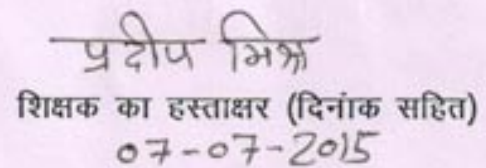 प्रदीप मिश्र
शिक्षक का हस्ताक्षर (दिनांक सहित)
07-07-2015